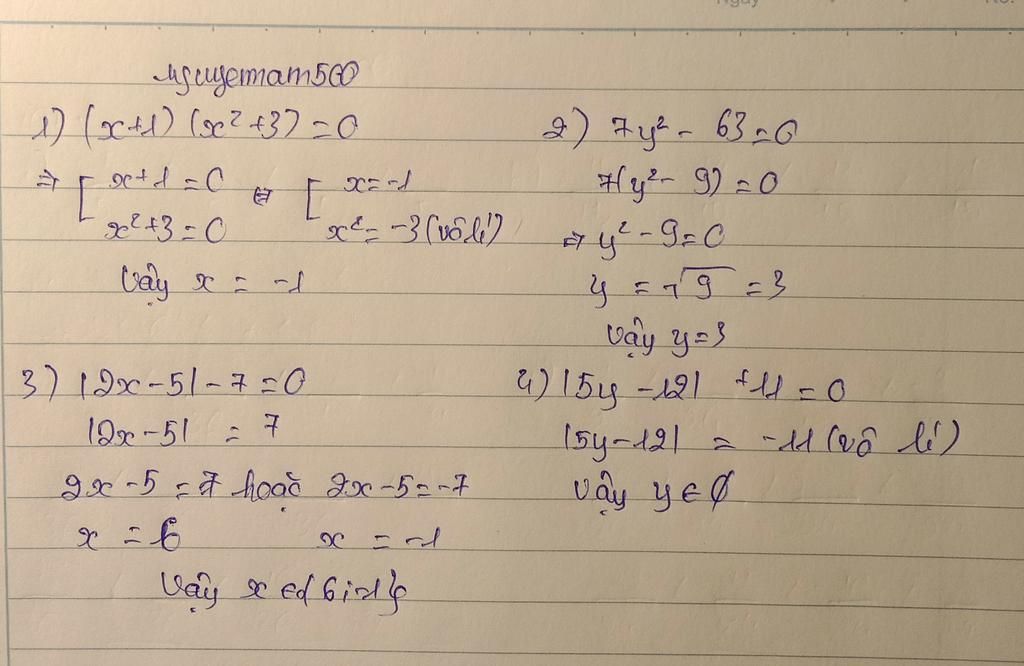 Ngày
No.
nguyetnam500
1) (x+1) (x²+3) = 0
⇒ [ x+1 = 0 ⇔ [ x = -1
x²+3 = 0 x² = -3 (vô lí)
Vậy x = -1
2) 7y² - 63 = 0
7(y² - 9) = 0
⇒ y² - 9 = 0
y = √9 = 3
Vậy y = 3
3) |2x - 5| - 7 = 0
|2x - 5| = 7
2x - 5 = 7 hoặc 2x - 5 = -7
x = 6 x = -1
Vậy x ∈ {6; -1}
4) |5y - 12| + 11 = 0
|5y - 12| = -11 (vô lí)
Vậy y ∈ ∅